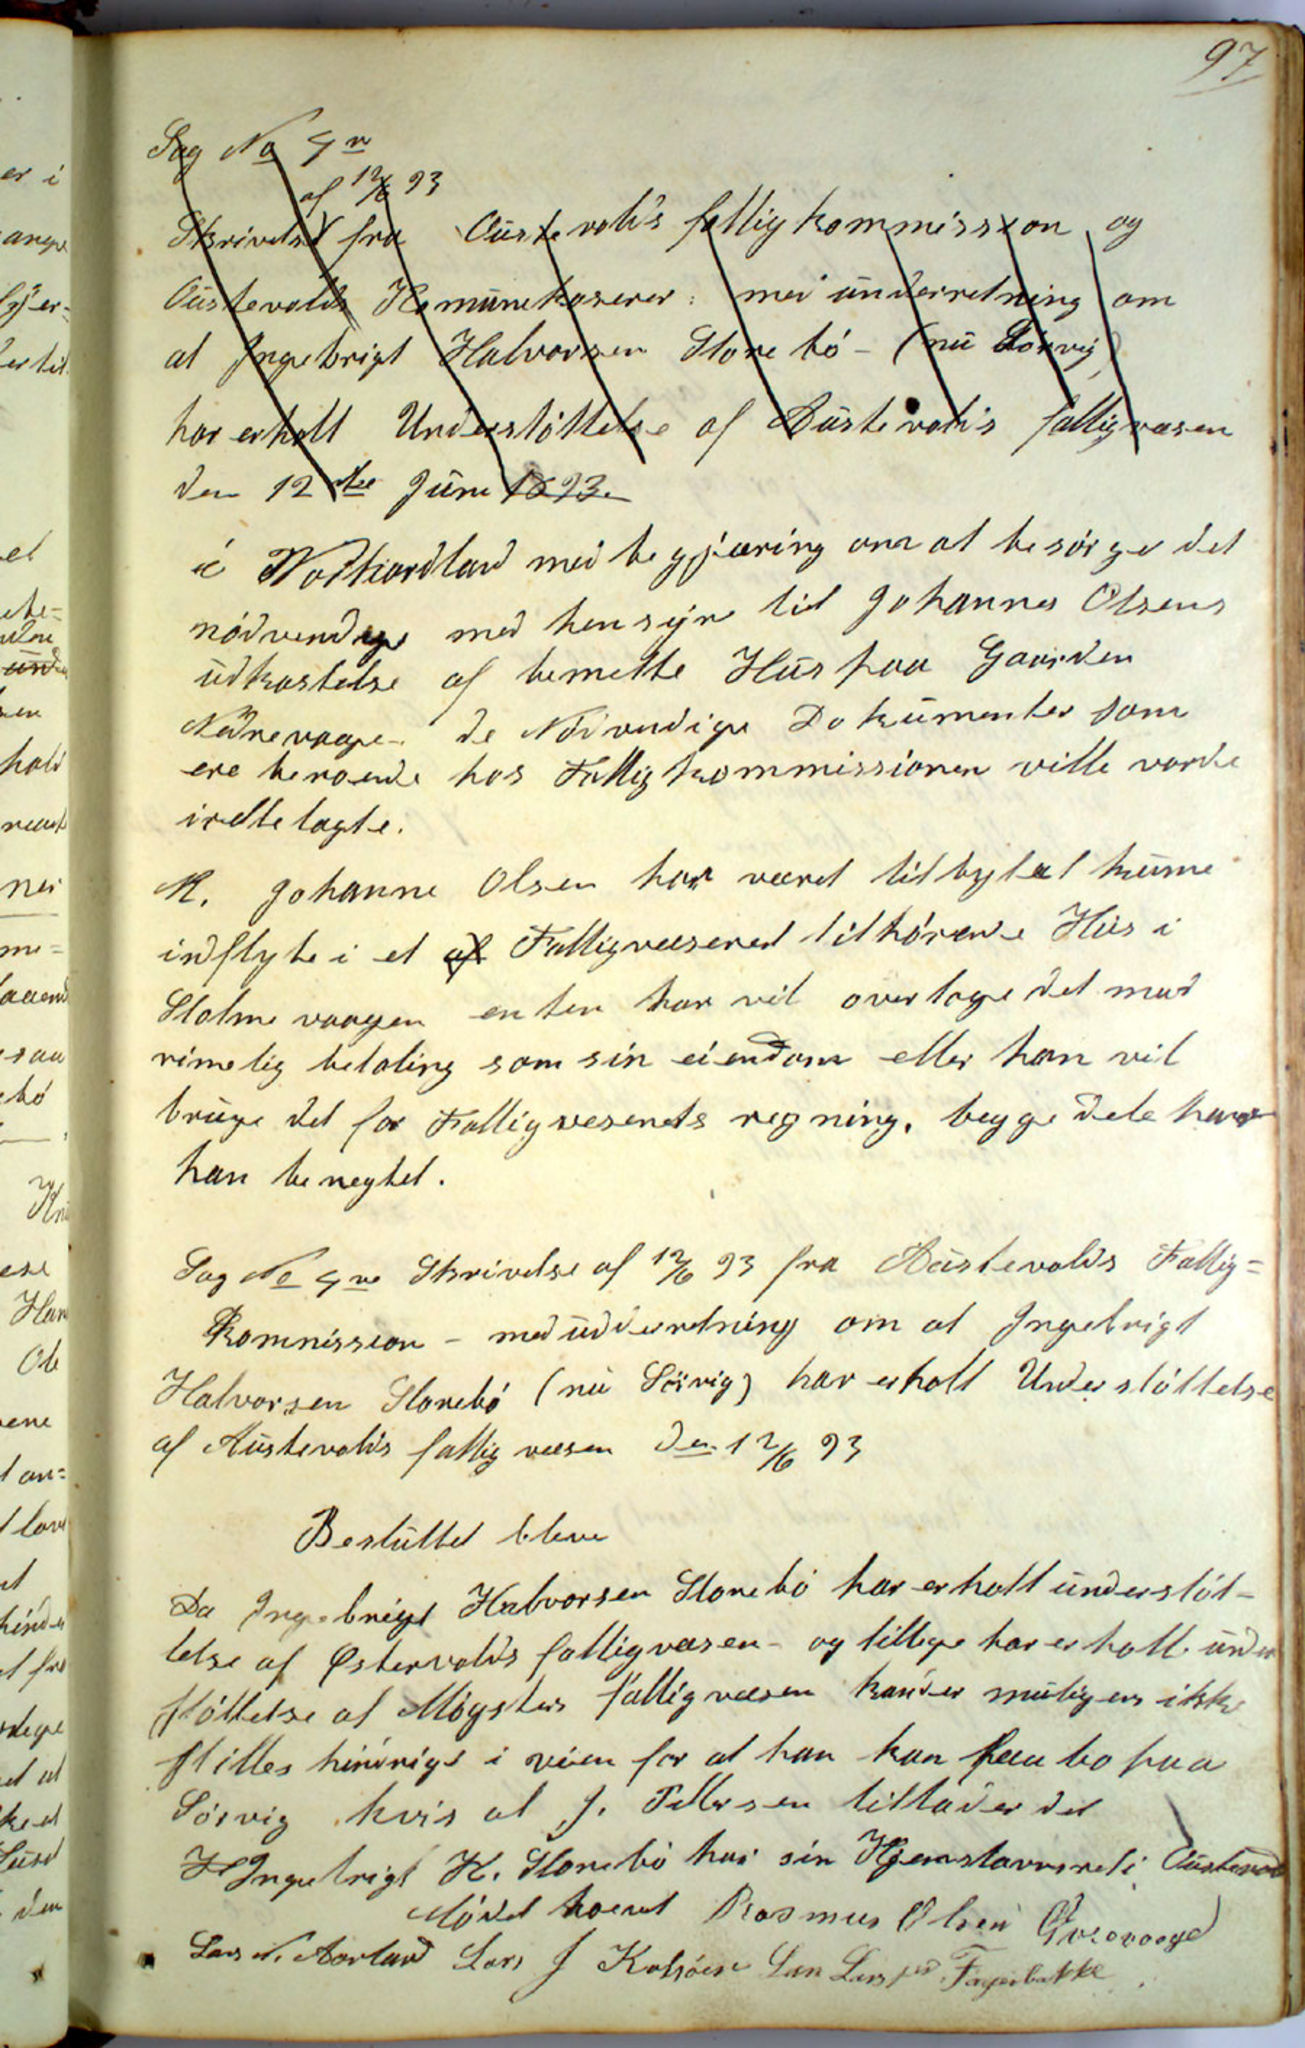 97
Sag No 4re
af 12/6 93
Skrivelse fra Austevolds fattigkommission og
Austevolds Komunekaserer: med underretning om
at Ingebrigt Halvorsen Storebö - (nu Sörvig)
har erholt Understöttelse af Austevolds fattigvæsen
den 12te Juni 1893.
i Nordhordland med begjæring om at besörge det
nödvendige med hensyn til Johannes Olsens
udkastelse af bemelte Hus paa Gaarden
Nedrevaage - de Nödvendige Dokumenter som
ere beroende hos Fattigkommissionen ville vorde
irettelagte.
M. Johanne Olsen har været tilbytet kunne
indflyte i et af Fattigvæsenet tilhörende Hus i
Stolmevaagen enten han vil overtage det mod
rimelig betaling som sin eiendom eller han vil
bruge det for Fattigvesenets regning, begge dele have
han benegtet.
Sag No 4re Skrivelse af 12/6 93 fra Austevolds Fattig=
Kommission - med udderretning om at Ingebrigt
Halvorsen Storebö (nu Sörvig) har erholt Understöttelse
af Austevolds fattigvæsen den 12/6 93
Besluttet bleve
Da Ingebrigt Halvorsen Storebö har erholt understöt-
telse af Østervolds fattigvæsen - og tillige har erholt under
stöttelse af Mögsters fattigvæsen kander muligens ikke
stilles hindrige i veien for at han kan faa bo paa
Sörvig hvis at J. Pettersen tillader det
Ingebrigt H. Storebö har sin Hjemstavnsret i Austevold
Mödet hævet Rasmus Olsen
Lars N. Aarland Lars J Kalsöen Lars Larssen Fagerbakke